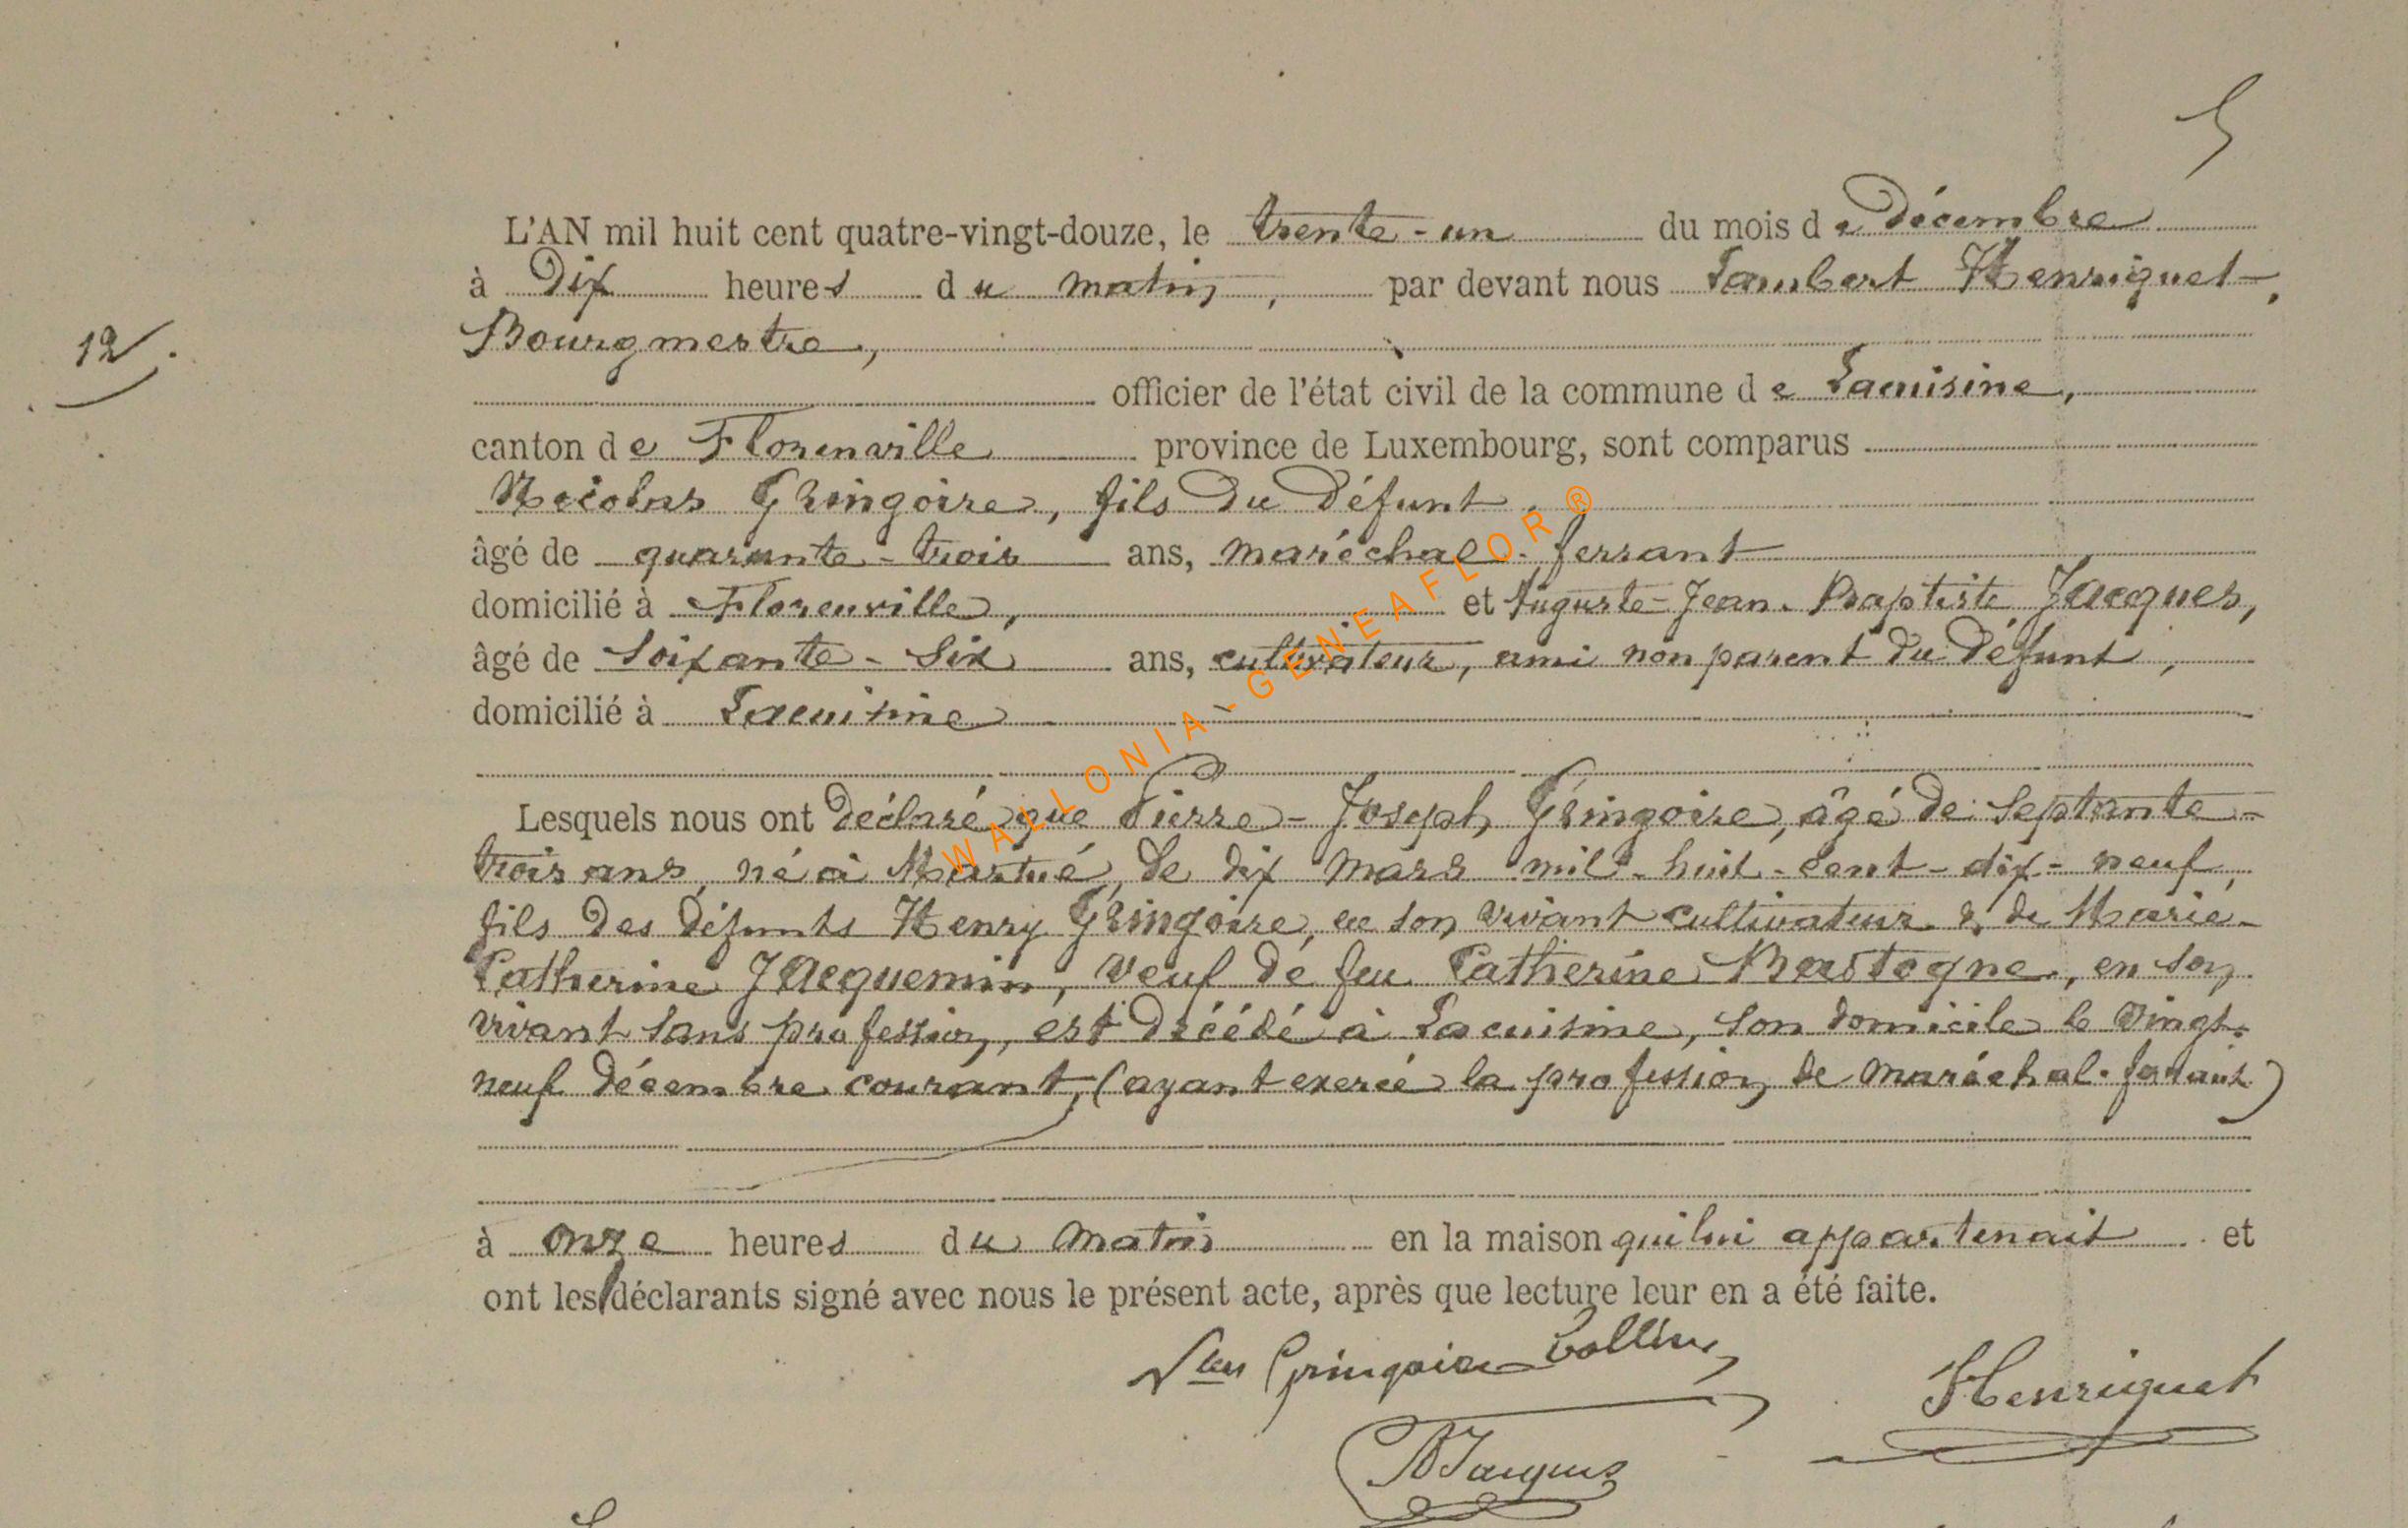 5
L'AN mil huit cent quatre-vingt-douze, le trente-un du mois de Décembre
à Dix heures du matin, par devant nous Lambert Henriquet,
Bourgmestre,
12.
officier de l'état civil de la commune de Lacuisine,
canton de Florenville province de Luxembourg, sont comparus
Nicolas Gringoire, fils du défunt,
âgé de quarante-trois ans, maréchal-ferrant
domicilié à Florenville, et Auguste-Jean-Baptiste Jacques,
âgé de soixante-six ans, cultivateur, ami non parent du défunt,
domicilié à Lacuisine
Lesquels nous ont déclaré que Pierre-Joseph Gringoire, âgé de septante-
trois ans, né à Martué, le dix mars mil-huit-cent-dix-neuf,
fils des défunts Henry Gringoire, en son vivant cultivateur & de Marie-
Catherine Jacquemin, veuf de feu Catherine Bastogne, en son
vivant sans profession, est décédé à Lacuisine, son domicile le vingt-
neuf décembre courant, (ayant exercé la profession de maréchal-ferrant)
à onze heures du matin en la maison qui lui appartenait et
ont les déclarants signé avec nous le présent acte, après que lecture leur en a été faite.
Nlas Gringoire Collin
Henriquet
BJacques
WALLONIA-GENEAFLOR®